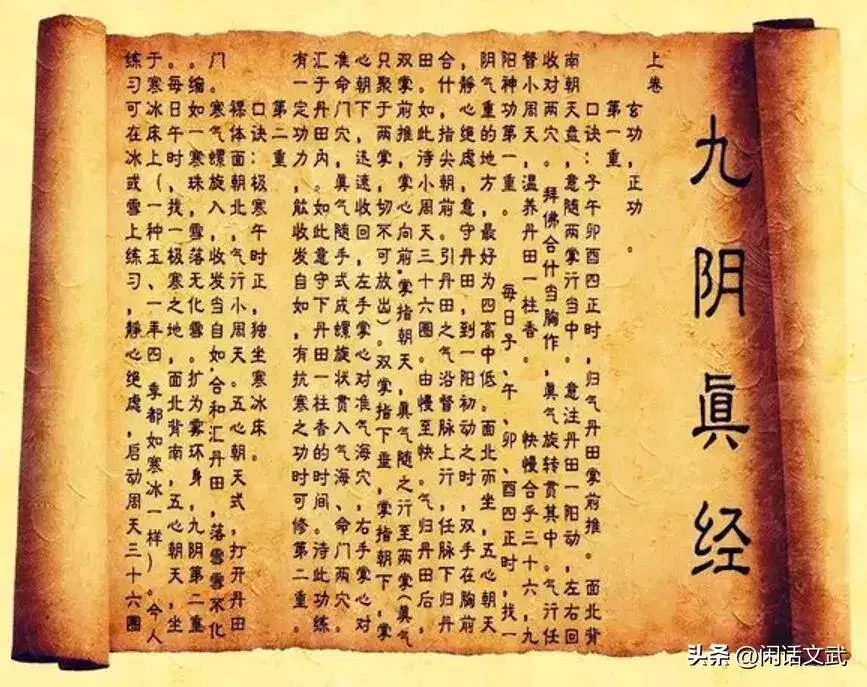 九阴眞经
上卷
玄功，正功。
第一重
口诀：子午卯酉四正时，归气丹田掌前推。 面北背
南朝天盘，意随两掌行当中。意注丹田一阳动，左右回
收对两穴。 拜佛合什当胸作，眞气旋转贯其中。气行任
督小周天，温养丹田一柱香。 快慢合乎三十六，九
阳神功第一重。 每日子、午、卯、酉四正时，找一
阴气重的地方，最好为四高中低。面北而坐，五心朝天
，静心绝虑，意守丹田，到一阳初动之时，双手在胸前
合什，指尖朝前。引丹田之气沿督脉上行，任脉下归丹
田。如此待小周天三十六圈。由慢至快。气归丹田后，
双掌前推，掌心向前，掌指朝天，眞气随之行至两掌（眞气
只聚于两掌，切不可放出）。双掌指下垂，掌指朝下，掌
心朝下，迅速收回，左手掌心对准气海穴，右手掌心对
准命门穴，眞气随手式成螺旋状贯入气海、命门两穴。
汇于丹田内。如此意守下丹田一柱香的时间。待此功练
有一定功力，能收发自如，有抗寒之功时可修第二重。
第二重
口诀：极寒午时正，独坐寒冰床。
裸体面朝北，气行小周天。五心朝天式，打开丹田
门。 寒气螺旋入，收发当自如，合和汇丹田，落雪雪不化
。缩如一寒珠，雪落无化雪。扩为雾环身，九阴第二重
。每日午时，找一极寒之地，面北背南，五心朝天，坐
于寒冰床上（一种玉、一年四季都如寒冰一样）。今人
练习可在冰或雪上练习，静心绝虑，启动周天三十六圈
头条 @闲话文武